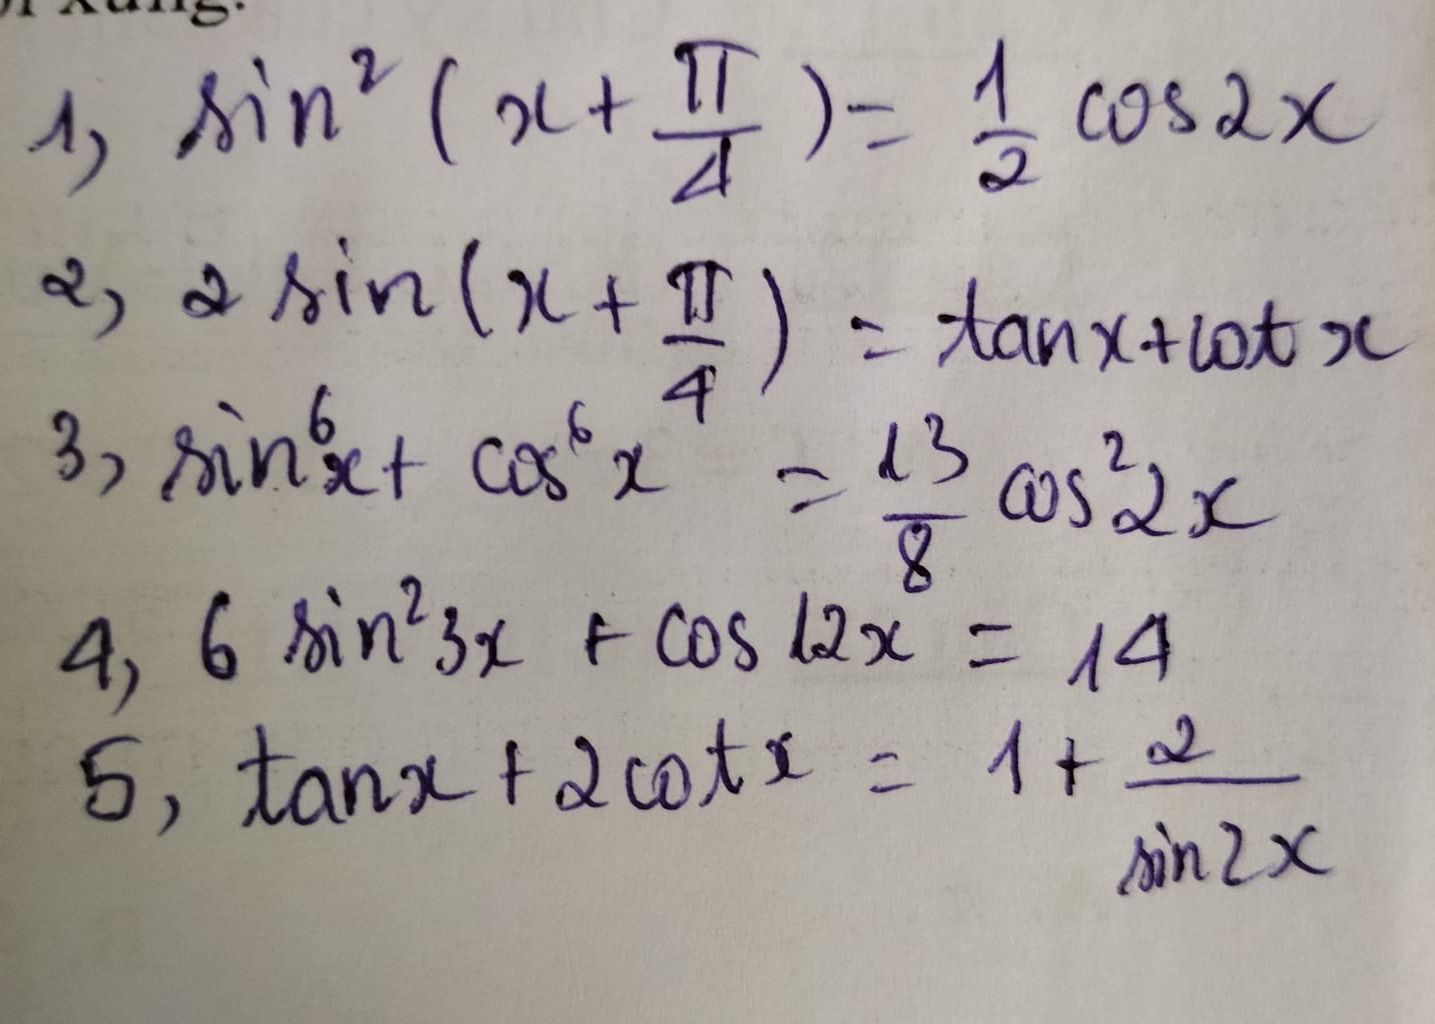 xứng.
1, sin² (x + π/4) = 1/2 cos2x
2, 2 sin(x + π/4) = tanx + cot x
3, sin⁶x + cos⁶x = 13/8 cos²2x
4, 6 sin²3x + cos 12x = 14
5, tanx + 2cotx = 1 + 2/sin2x